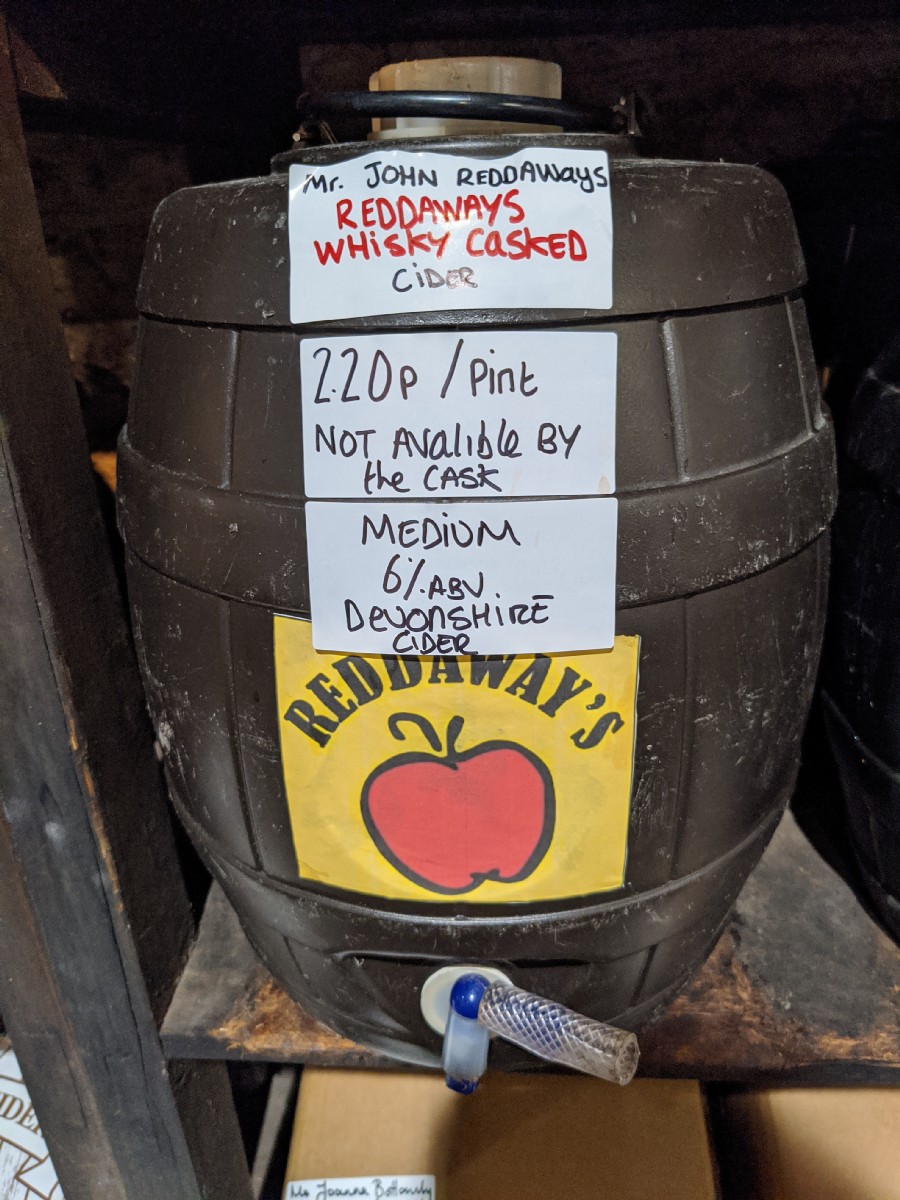 Mr. JOHN REDDAWAYS
REDDAWAYS
WHISKY CASKED
CIDER
2.20p / Pint
NOT AValible BY
the CASK
MEDIUM
6% ABV
DEVONSHIRE
CIDER
REDDAWAY'S
Joanna